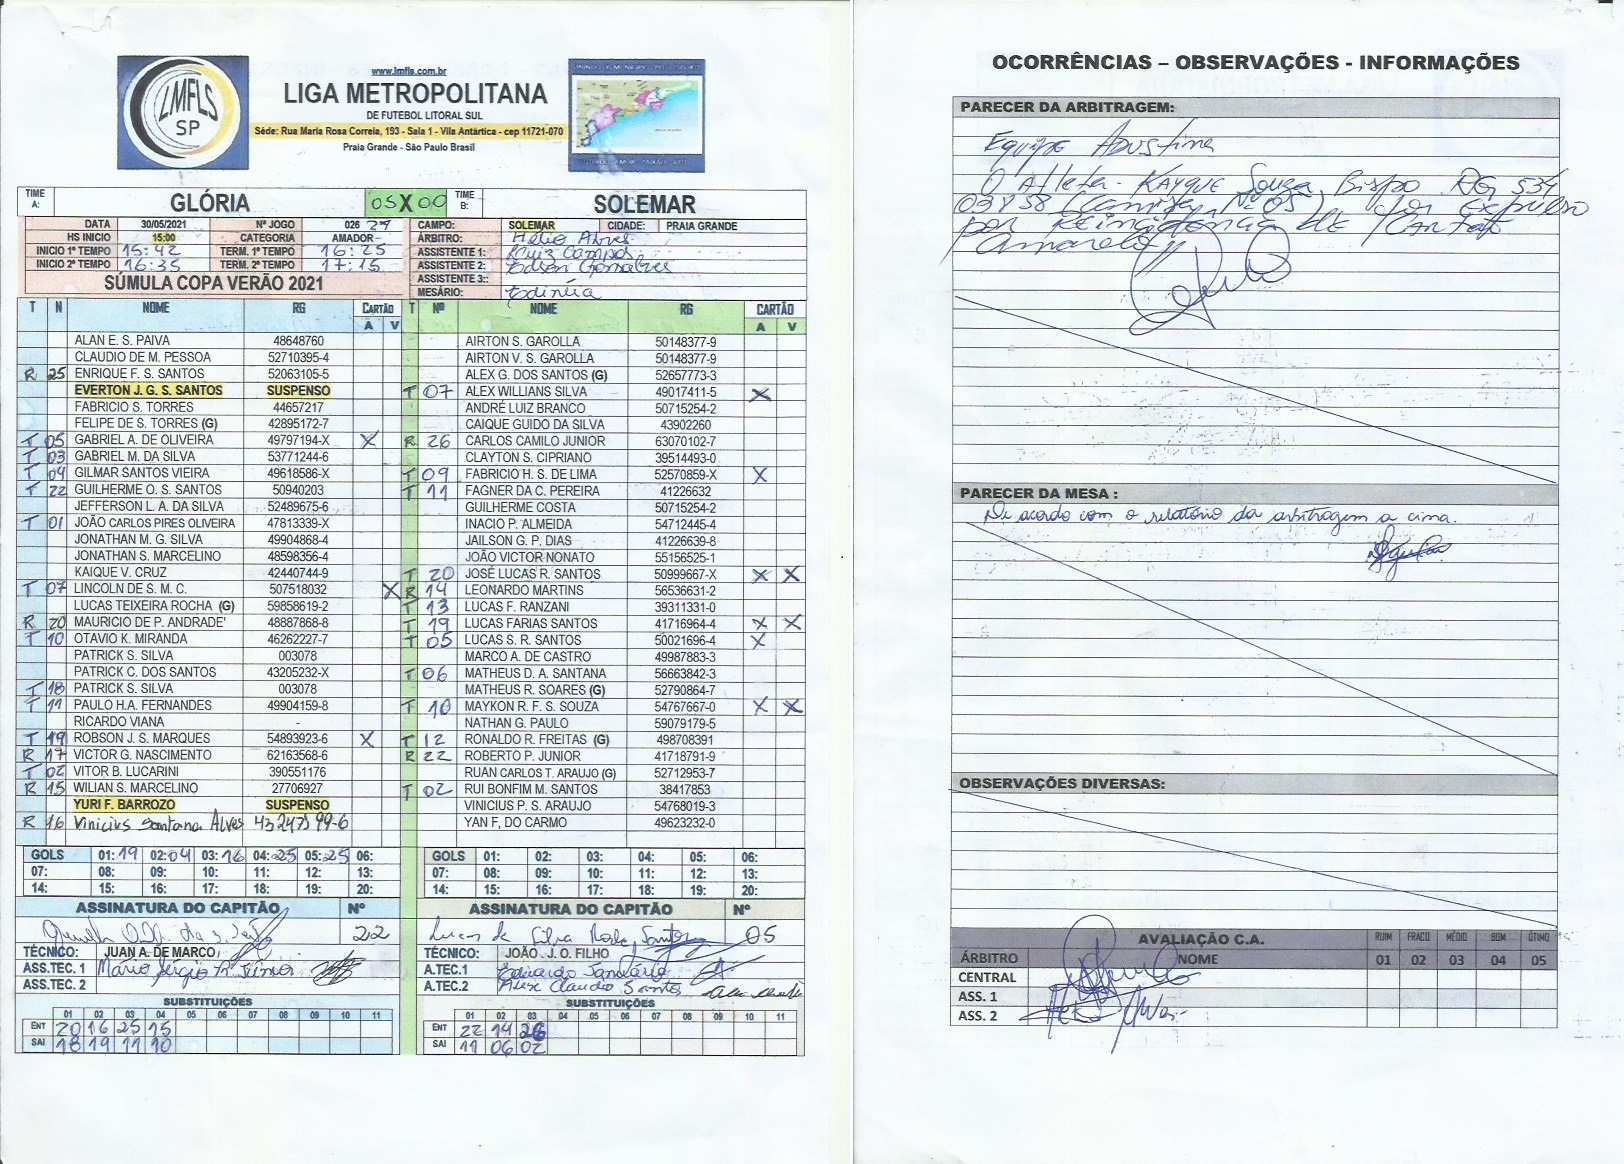 LMFLS
SP
www.lmfls.com.br
LIGA METROPOLITANA
DE FUTEBOL LITORAL SUL
Séde: Rua Maria Rosa Correia, 193 - Sala 1 - Vila Antártica - cep 11721-070
Praia Grande - São Paulo Brasil
TIME A: GLÓRIA 05 X 00 TIME B: SOLEMAR
DATA 30/05/2021 Nº JOGO 026 27 CAMPO: SOLEMAR CIDADE: PRAIA GRANDE
HS INICIO 15:00 CATEGORIA AMADOR – ÁRBITRO: Alves
INICIO 1º TEMPO 15:42 TERM. 1º TEMPO 16:25 ASSISTENTE 1: Luiz Campos
INICIO 2º TEMPO 16:35 TERM. 2º TEMPO 17:15 ASSISTENTE 2: Edson Gonsalves
ASSISTENTE 3::
SÚMULA COPA VERÃO 2021 MESÁRIO: Edinéia
T N NOME RG CARTÃO A V
ALAN E. S. PAIVA 48648760
CLAUDIO DE M. PESSOA 52710395-4
R 25 ENRIQUE F. S. SANTOS 52063105-5
EVERTON J. G. S. SANTOS SUSPENSO
FABRICIO S. TORRES 44657217
FELIPE DE S. TORRES (G) 42895172-7
T 05 GABRIEL A. DE OLIVEIRA 49797194-X X
T 03 GABRIEL M. DA SILVA 53771244-6
T 04 GILMAR SANTOS VIEIRA 49618586-X
T 22 GUILHERME O. S. SANTOS 50940203
JEFFERSON L. A. DA SILVA 52489675-6
T 01 JOÃO CARLOS PIRES OLIVEIRA 47813339-X
JONATHAN M. G. SILVA 49904868-4
JONATHAN S. MARCELINO 48598356-4
KAIQUE V. CRUZ 42440744-9
T 07 LINCOLN DE S. M. C. 507518032 X
LUCAS TEIXEIRA ROCHA (G) 59858619-2
R 20 MAURICIO DE P. ANDRADE' 48887868-8
T 10 OTAVIO K. MIRANDA 46262227-7
PATRICK S. SILVA 003078
PATRICK C. DOS SANTOS 43205232-X
T 18 PATRICK S. SILVA 003078
T 11 PAULO H.A. FERNANDES 49904159-8
RICARDO VIANA -
T 19 ROBSON J. S. MARQUES 54893923-6 X
R 17 VICTOR G. NASCIMENTO 62163568-6
T 02 VITOR B. LUCARINI 390551176
R 15 WILIAN S. MARCELINO 27706927
YURI F. BARROZO SUSPENSO
R 16 Vinicius Santana Alves 43247399-6
GOLS 01: 19 02: 04 03: 16 04: 25 05: 25 06:
07: 08: 09: 10: 11: 12: 13:
14: 15: 16: 17: 18: 19: 20:
ASSINATURA DO CAPITÃO Nº
22
TÉCNICO: JUAN A. DE MARCO
ASS.TEC. 1 Mário Sérgio Júnior
ASS.TEC. 2
SUBSTITUIÇÕES
01 02 03 04 05 06 07 08 09 10 11
ENT 20 16 25 15
SAI 18 19 11 10
T Nº NOME RG CARTÃO A V
AIRTON S. GAROLLA 50148377-9
AIRTON V. S. GAROLLA 50148377-9
ALEX G. DOS SANTOS (G) 52657773-3
T 07 ALEX WILLIANS SILVA 49017411-5 X
ANDRÉ LUIZ BRANCO 50715254-2
CAIQUE GUIDO DA SILVA 43902260
R 26 CARLOS CAMILO JUNIOR 63070102-7
CLAYTON S. CIPRIANO 39514493-0
T 09 FABRICIO H. S. DE LIMA 52570859-X X
T 11 FAGNER DA C. PEREIRA 41226632
GUILHERME COSTA 50715254-2
INACIO P. ALMEIDA 54712445-4
JAILSON G. P. DIAS 41226639-8
JOÃO VICTOR NONATO 55156525-1
T 20 JOSÉ LUCAS R. SANTOS 50999667-X X X
R 14 LEONARDO MARTINS 56536631-2
T 13 LUCAS F. RANZANI 39311331-0
T 19 LUCAS FARIAS SANTOS 41716964-4 X X
T 05 LUCAS S. R. SANTOS 50021696-4 X
MARCO A. DE CASTRO 49987883-3
T 06 MATHEUS D. A. SANTANA 56663842-3
MATHEUS R. SOARES (G) 52790864-7
T 10 MAYKON R. F. S. SOUZA 54767667-0 X X
NATHAN G. PAULO 59079179-5
T 12 RONALDO R. FREITAS (G) 498708391
R 22 ROBERTO P. JUNIOR 41718791-9
RUAN CARLOS T. ARAUJO (G) 52712953-7
T 02 RUI BONFIM M. SANTOS 38417853
VINICIUS P. S. ARAUJO 54768019-3
YAN F, DO CARMO 49623232-0
GOLS 01: 02: 03: 04: 05: 06:
07: 08: 09: 10: 11: 12: 13:
14: 15: 16: 17: 18: 19: 20:
ASSINATURA DO CAPITÃO Nº
Lucas da Silva Santos 05
TÉCNICO: JOÃO. J. O. FILHO
A.TEC.1 Eduardo Januário
A.TEC.2 Alex Claudio Santos
SUBSTITUIÇÕES
01 02 03 04 05 06 07 08 09 10 11
ENT 22 14 26
SAI 11 06 02
OCORRÊNCIAS – OBSERVAÇÕES - INFORMAÇÕES
PARECER DA ARBITRAGEM:
Equipe Adustina
O Atleta - Kayque Souza Bispo RG 534
03858 (Camisa Nº 05) foi expulso
por Reincidencia de Cartão
Amarelo
PARECER DA MESA :
De acordo com o relatório da arbitragem a cima.
OBSERVAÇÕES DIVERSAS:
AVALIAÇÃO C.A. RUIM FRACO MÉDIO BOM ÓTIMO
ÁRBITRO NOME 01 02 03 04 05
CENTRAL
ASS. 1
ASS. 2